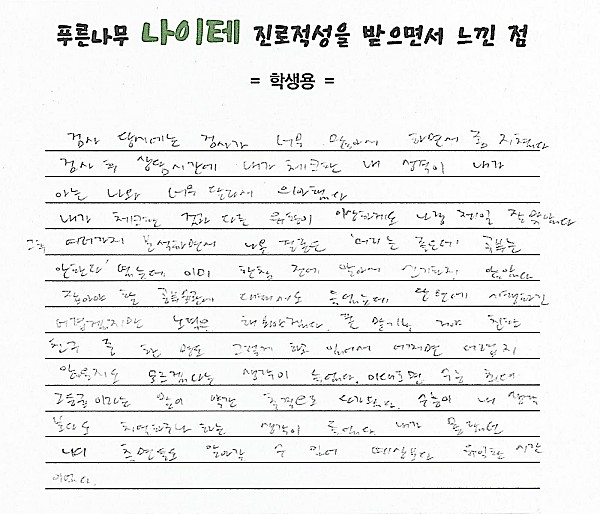 푸른나무 나이테 진로적성을 받으면서 느낀 점
= 학생용 =
검사 당시에는 검사가 너무 많아서 하면서 좀 지쳤다
검사 후 상담시간에 내가 체크한 내 성격이 내가
아는 나와 너무 달라서 의아했다
내가 체크한 것과 다른 유형이 이상하게도 나랑 제일 잘 맞았다
그후 여러가지 분석하면서 나온 결론은 '머리는 좋은데 공부는
안한다' 였는데 이미 한참 전에 알아서 신기하진 않았다
잡아야 할 공부습관에 대해서도 들었는데 단번에
어렵겠지만 노력은 해봐야겠다. 나와 친한
친구 중 한 명도 그렇게 하고 있어서 어쩌면 어렵지
않을지도 모르겠다는 생각이 들었다. 이대로면 수능 최대
고등급이라는 말이 약간 충격으로 다가왔다. 수능이 내 생각
보다도 하는 생각이 들었다. 내가 몰랐던
나의 측면들도 알아갈 수 있어 예상보다 유익한 시간
이었다.